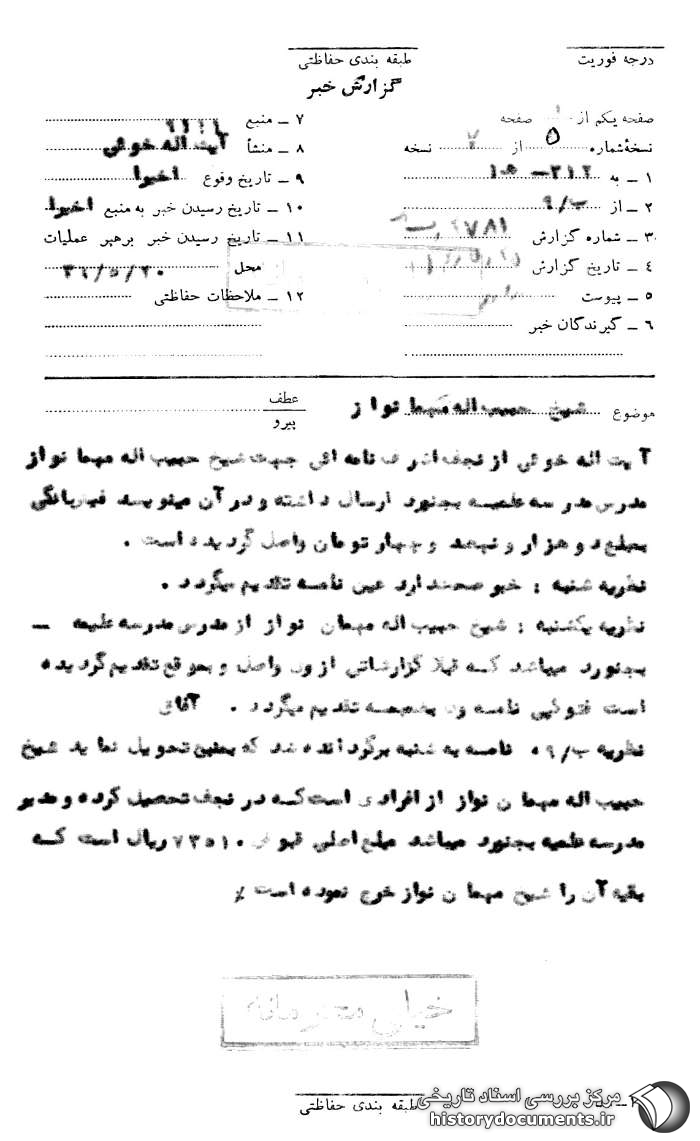 درجه فوریت
طبقه بندی حفاظتی
گزارش خبر
صفحه یکم از ۱ صفحه
نسخهٔ شماره ۵ از ۷ نسخه
۱ ـ به ۳۱۲
۲ ـ از ۹/ب
۳ ـ شماره گزارش
۴ ـ تاریخ گزارش
۵ ـ پیوست
۶ ـ گیرندگان خبر
۷ ـ منبع
۸ ـ منشأ آیت اله خوئی
۹ ـ تاریخ وقوع اخیرا
۱۰ ـ تاریخ رسیدن خبر به منبع اخیرا
۱۱ ـ تاریخ رسیدن خبر برهبر عملیات
محل ۳۶/۵/۲۰
۱۲ ـ ملاحظات حفاظتی
موضوع شیخ حبیب اله مهما نواز
عطف
پیرو
آیت اله خوئی از نجف اشرف نامه ائی جهت شیخ حبیب اله مهما نواز
مدرس مدرسه علمیه بجنورد ارسال داشته و در آن مینویسد قبض بانکی
بمبلغ دو هزار و نهصد و چهار تومان واصل گردیده است .
نظریه شنبه : خبر صحت دارد عین نامه تقدیم میگردد .
نظریه یکشنبه : شیخ حبیب اله مهمان نواز از مدرس مدرسه علمیه ـ
بجنورد میباشد که قبلا گزارشاتی از وی واصل و بموقع تقدیم گردیده
است فتوکپی نامه وی بضمیمه تقدیم میگردد . آفاق
نظریه ۹/ب نامه به شنبه برگردانده شد که بمنبع تحویل نماید شیخ
حبیب اله مهما ن نواز از افرادی است که در نجف تحصیل کرده و مدیر
مدرسه علمیه بجنورد میباشد مبلغ اصلی قبوض ۷۳۵۱۰ ریال است که
بقیه آن را شیخ مهما ن نواز خرج نموده است ٪
خیلی محرمانه
طبقه بندی حفاظتی
مرکز بررسی اسناد تاریخی
historydocuments.ir